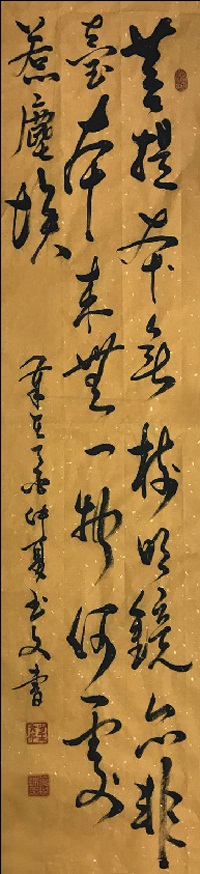 菩提本無樹明鏡亦非
臺本来無一物何處
惹塵埃
仲夏文書